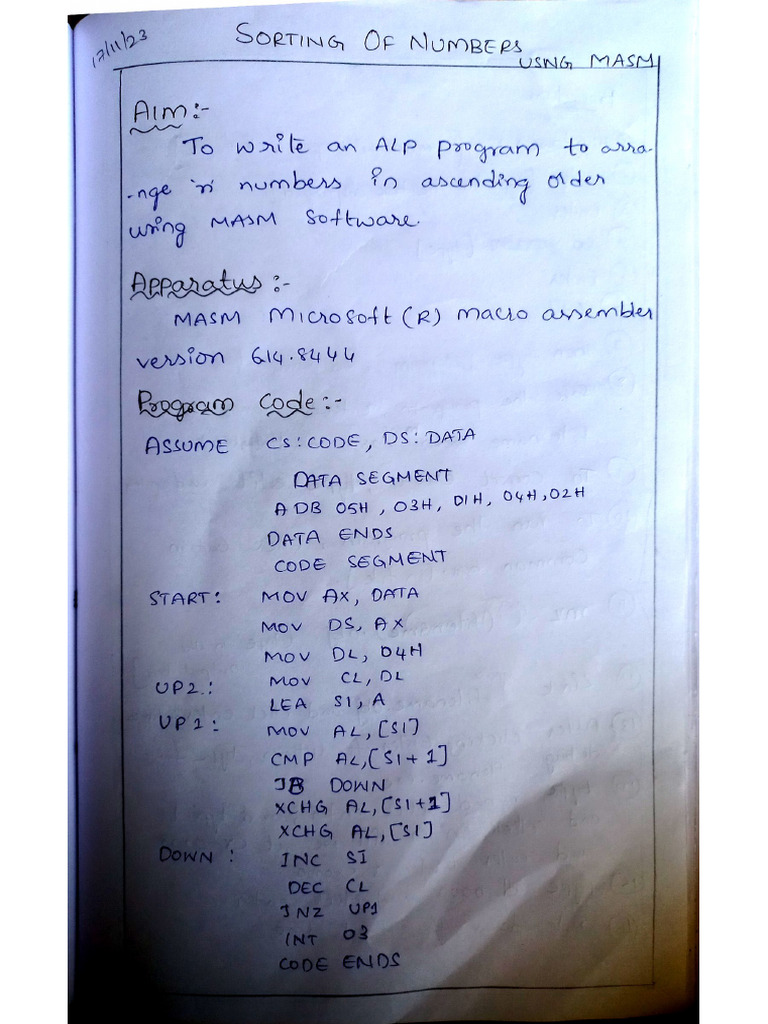 17/11/23
SORTING OF NUMBERS
USNG MASM
Aim:-
To write an ALP program to arra-
-nge 'n' numbers in ascending order
using MASM Software.
Apparatus:-
MASM Microsoft (R) macro assembler
version 614.8444
Program Code:-
ASSUME CS:CODE, DS:DATA
DATA SEGMENT
A DB 05H, 03H, 01H, 04H, 02H
DATA ENDS
CODE SEGMENT
START: MOV AX, DATA
MOV DS, AX
MOV DL, 04H
UP2.: MOV CL, DL
LEA SI, A
UP1: MOV AL,[SI]
CMP AL,[SI+1]
JB DOWN
XCHG AL,[SI+1]
XCHG AL,[SI]
DOWN: INC SI
DEC CL
JNZ UP1
INT 03
CODE ENDS